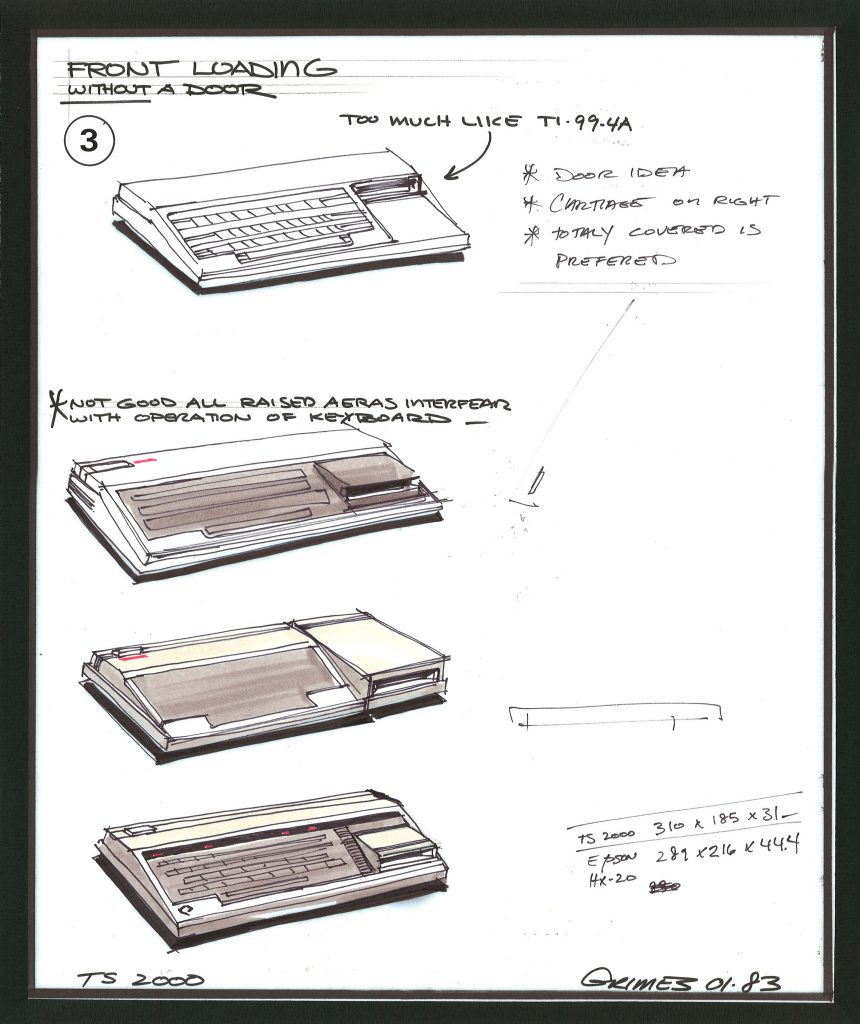 FRONT LOADING
WITHOUT A DOOR
3
TOO MUCH LIIKE TI-99.4A
* DOOR IDEA
* CARTIAGE ON RIGHT
* TOTALY COVERED IS
PREFERED
* NOT GOOD ALL RAISED AERAS INTERFEAR
WITH OPERATION OF KEYBOARD —
TS 2000 310 x 185 x 31—
EPSON 289 x 216 x 44.4
HX-20
TS 2000
GRIMES 01.83